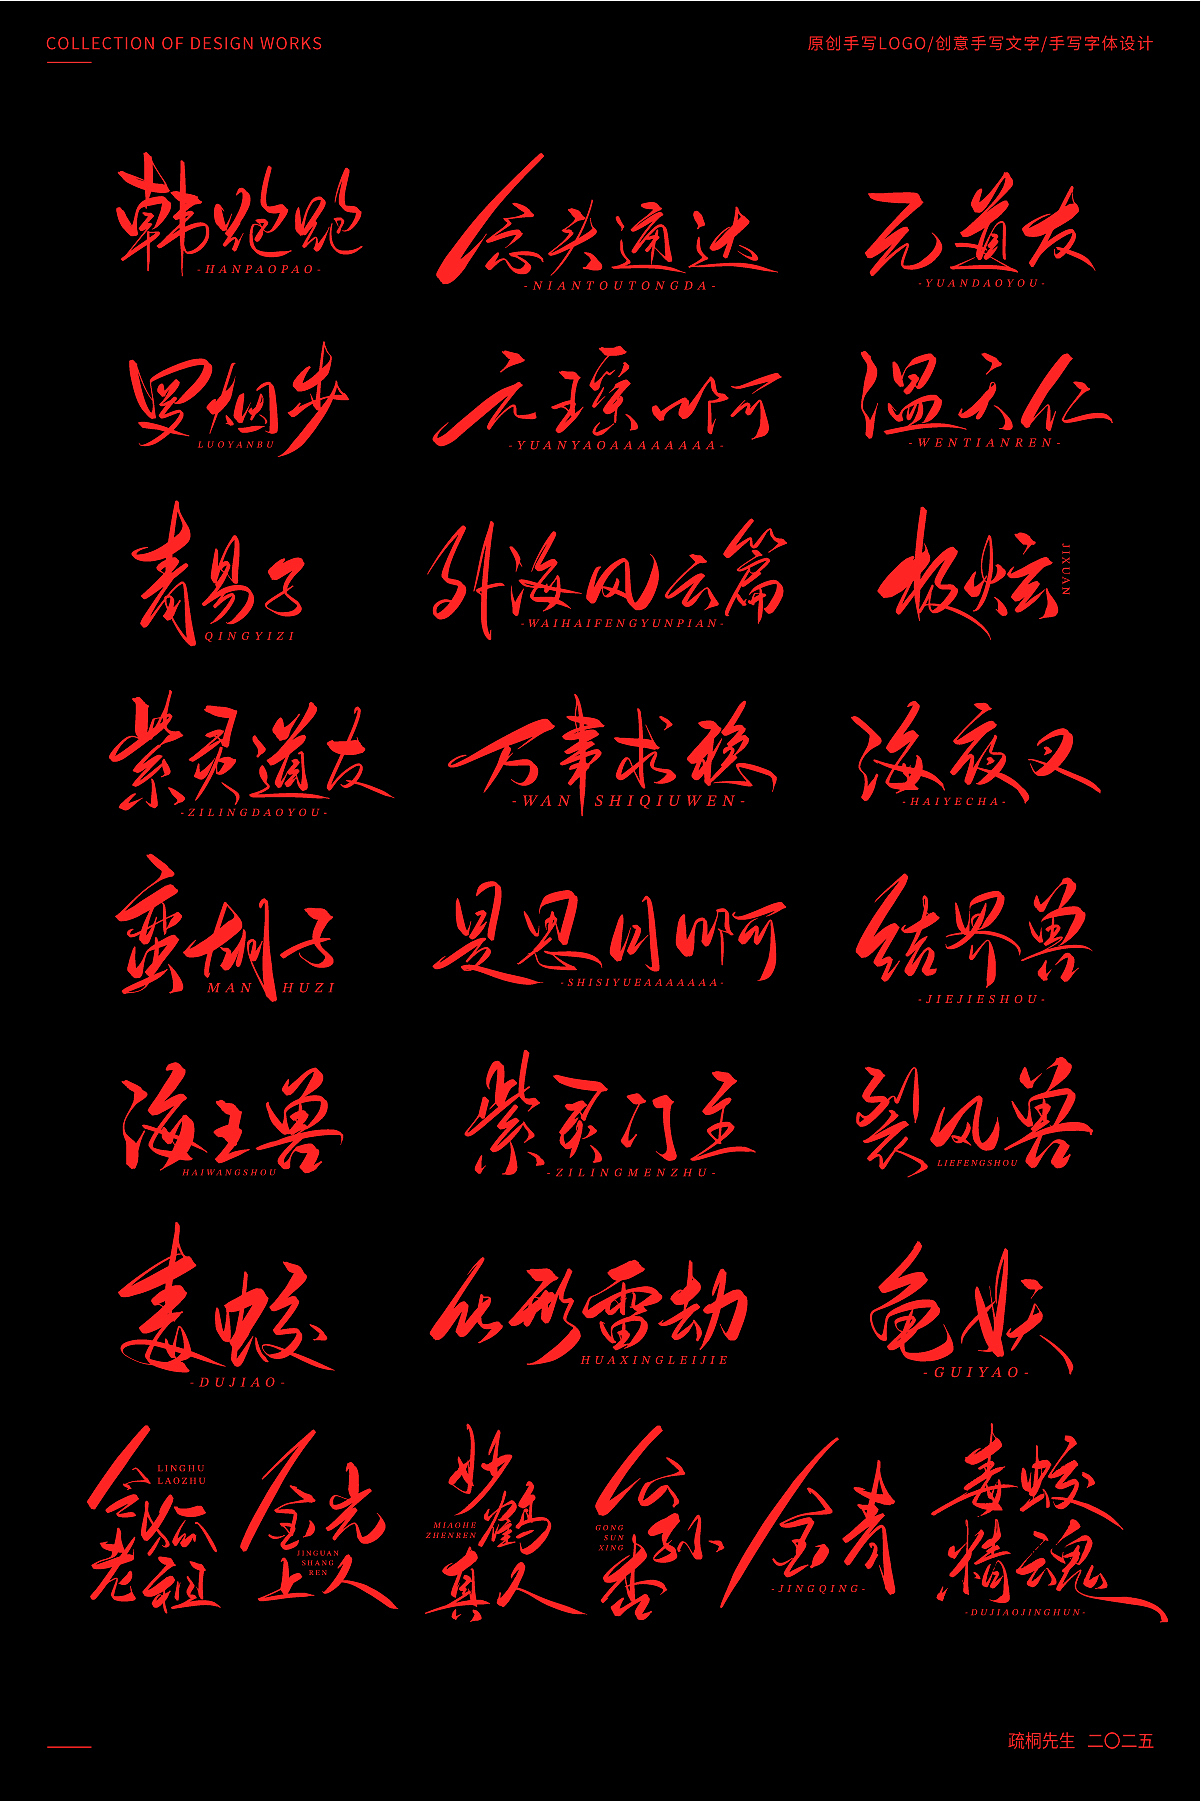 COLLECTION OF DESIGN WORKS
原创手写LOGO/创意手写文字/手写字体设计
韩跑跑
-HANPAOPAO-
念头通达
-NIANTOUTONGDA-
元道友
-YUANDAOYOU-
罗烟步
LUOYANBU
元瑶啊
-YUANYAOAAAAAAAAA-
温天仁
-WENTIANREN-
青易子
QINGYIZI
外海风云篇
-WAIHAIFENGYUNPIAN-
极炫
JIXUAN
紫灵道友
-ZILINGDAOYOU-
万事求稳
-WAN SHIQIUWEN-
海夜叉
-HAIYECHA-
蛮胡子
MAN HUZI
是思月啊
-SHISIYUEAAAAAAA-
结界兽
-JIEJIESHOU-
海王兽
HAIWANGSHOU
紫灵门主
-ZILINGMENZHU-
裂风兽
LIEFENGSHOU
毒蛟
-DUJIAO-
化形雷劫
HUAXINGLEIJIE
龟妖
-GUIYAO-
令狐老祖
LINGHU
LAOZHU
金光上人
JINGUAN
SHANG
REN
妙鹤真人
MIAOHE
ZHENREN
公孙杏
GONG
SUN
XING
金青
-JINGQING-
毒蛟精魂
-DUJIAOJINGHUN-
疏桐先生 二〇二五